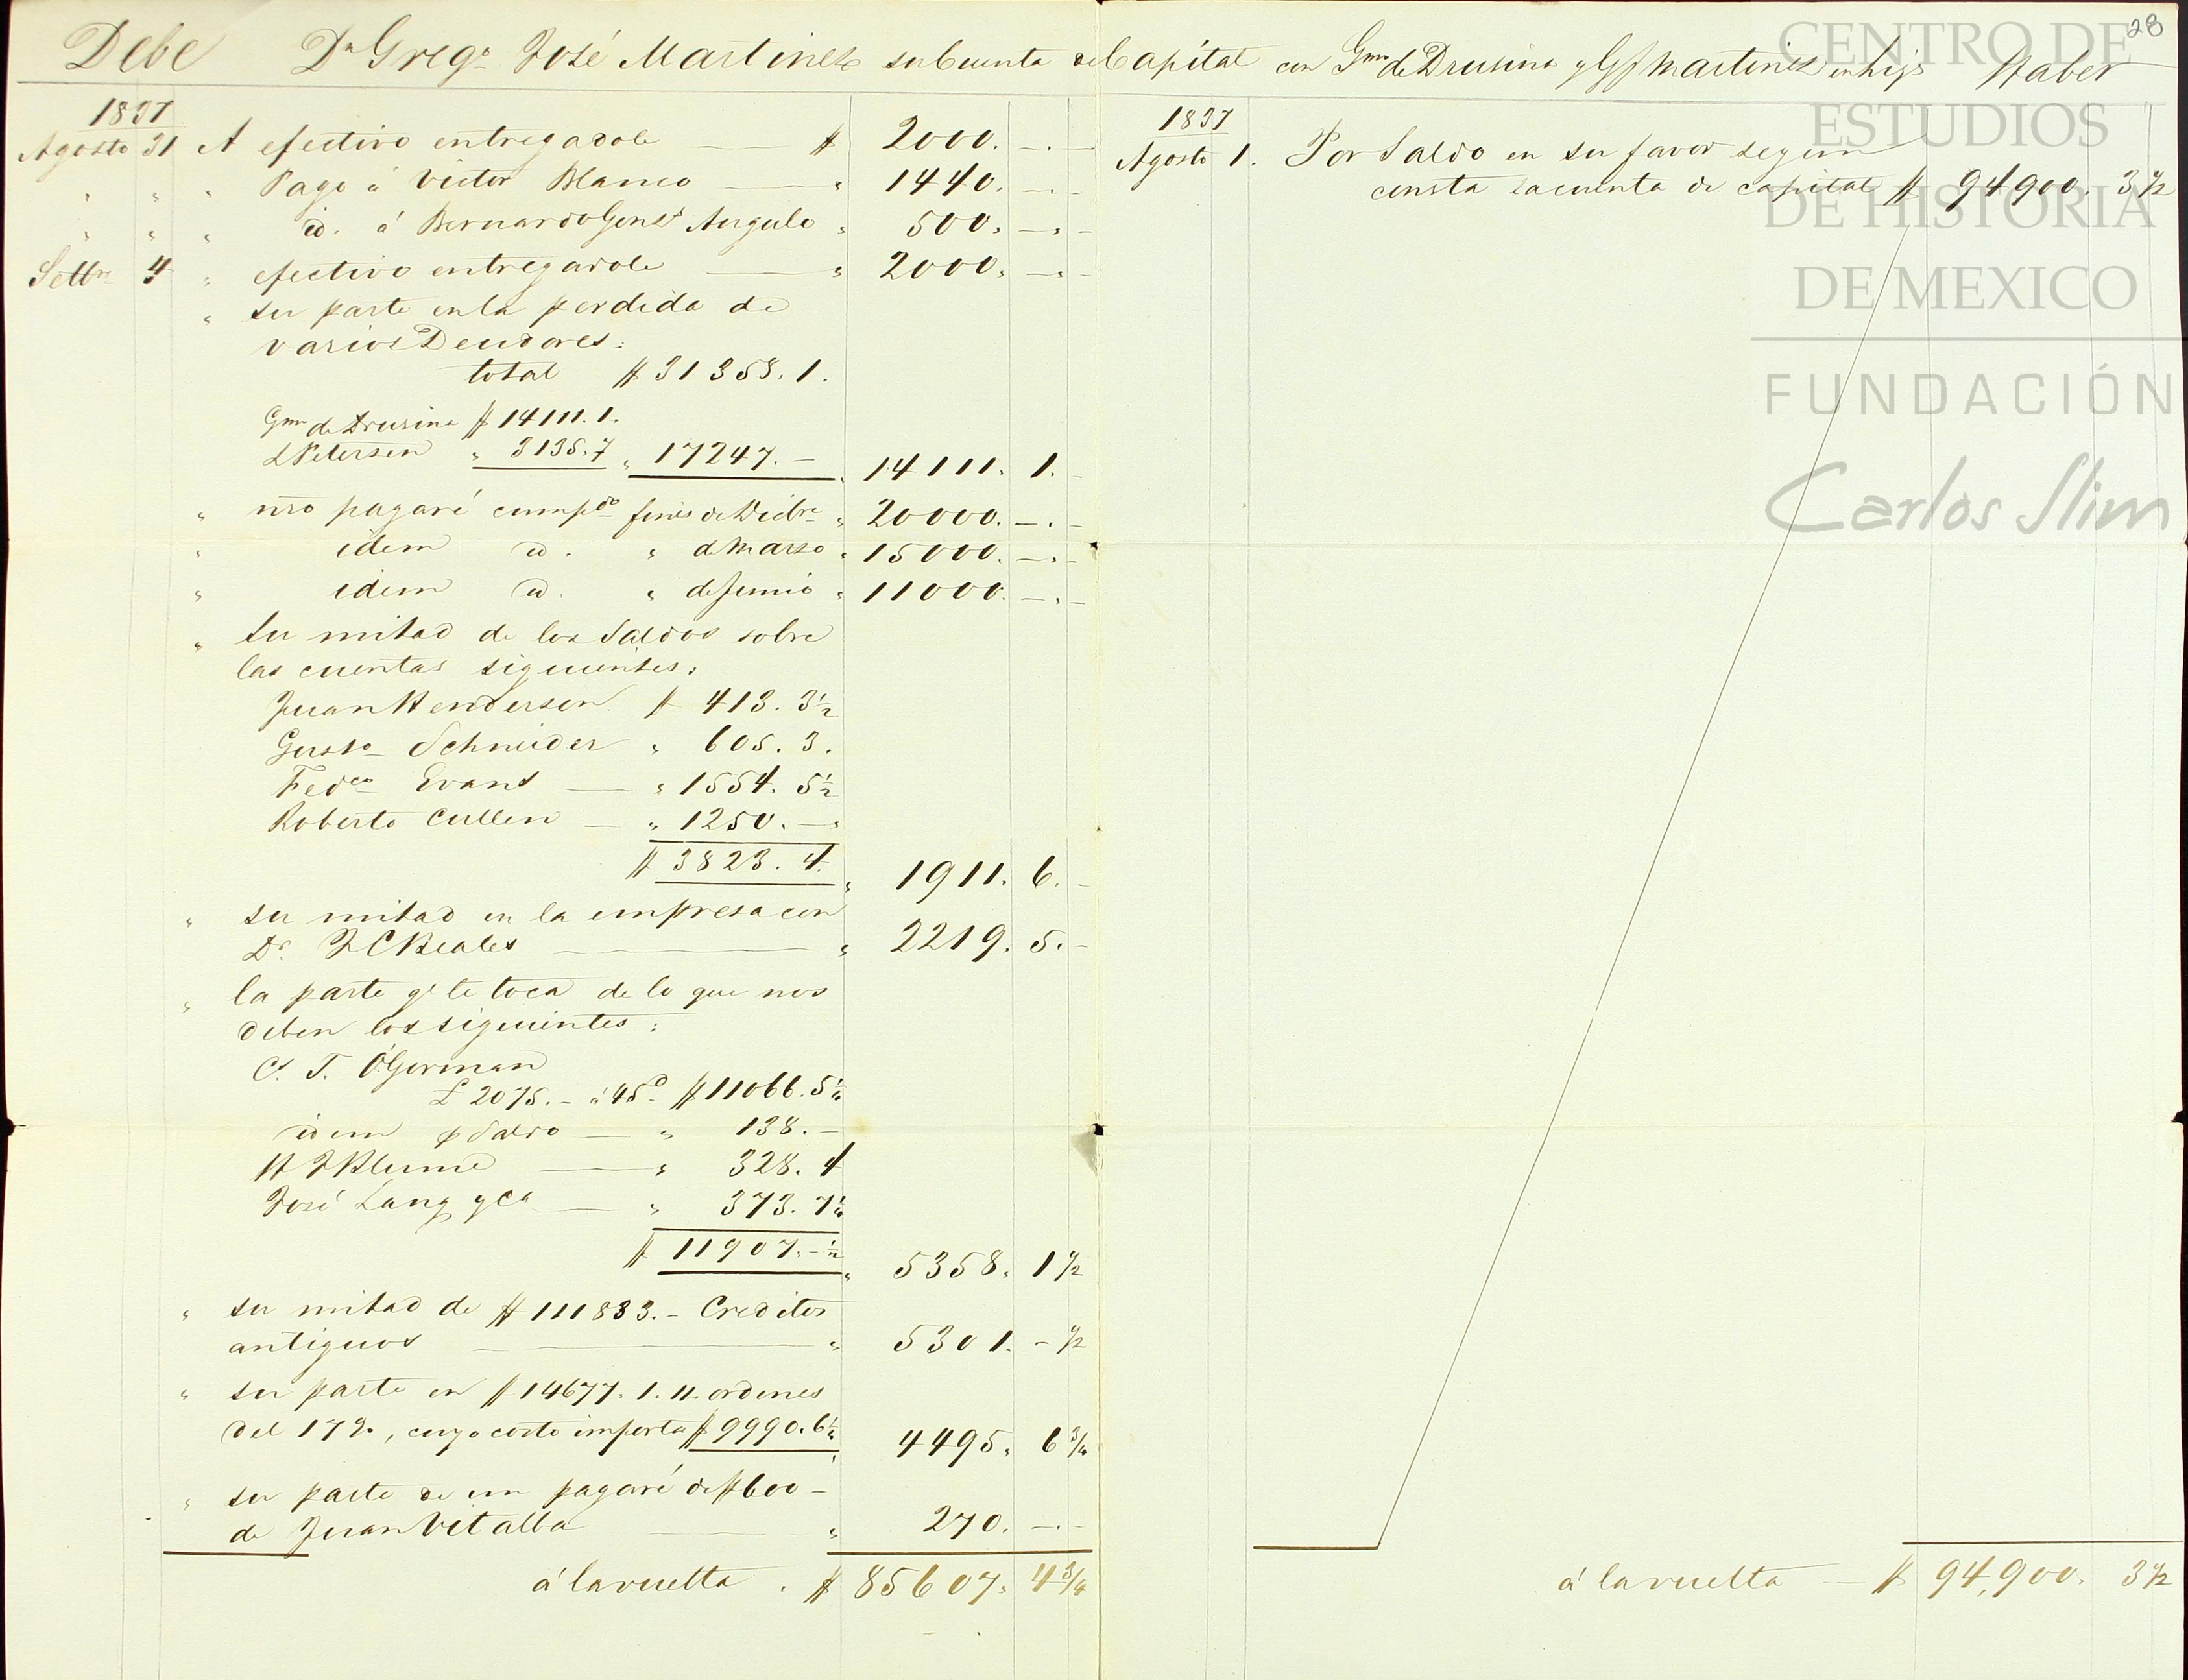 28
Debe Dn Grego José Martinez su Cuenta de Capital con Gmo de Drusina y G J Martinez en liqn Haber
1837
Agosto 31 A efectivo entregadole $ 2000. -.-
" " " Pago á Victor Blanco " 1440. -.-
" " " id. á Bernardo Gonz Angulo " 500. -.-
Setbre 4 " efectivo entregadole " 2000. -.-
" su parte en la perdida de
varios Deudores:
total $ 31358. 1.
Gmo de Drusina $ 14111. 1.
L Petersen " 3135. 7 " 17247. - " 14111. 1. -
" nro pagaré cumpdo fines de Dicbre " 20000. -.-
" idem id. " de Marzo " 15000. -.-
" idem id. " de Junio " 11000. -.-
" su mitad de los Saldos sobre
las cuentas siguientes:
Juan Henderson $ 413. 3½
Gusto Schneider " 605. 3.
Fedco Evans " 1554. 5½
Roberto Cullen " 1250. -
$ 3823. 4. " 1911. 6. -
" su mitad en la empresa con
Dr. J C Beales " 2219. 5. -
" la parte qe le toca de lo que nos
deben los siguientes:
C. T. O'Gorman
£ 2075. - á 45d $ 11066. 5¼
idem p Saldo " 138. -
H J Blume " 328. 4
José Lang y Ca " 373. 7¼
$ 11907. - ½ " 5358. 1½
" su mitad de $ 111833. - Creditos
antiguos " 5301. - ½
" su parte en $ 14677. 1. 11. ordenes
del 17%, cuyo costo importa $ 9990. 6½ " 4495. 6¾
" su parte de un pagaré de $ 600 -
de Juan Vitalba " 270. -.-
á la vuelta . $ 85607. 4¾
1837
Agosto 1. Por Saldo en su favor segun
consta la cuenta de capital $ 94900. 3½
á la vuelta $ 94,900. 3½
CENTRO DE
ESTUDIOS
DE HISTORIA
DE MEXICO
FUNDACIÓN
Carlos Slim